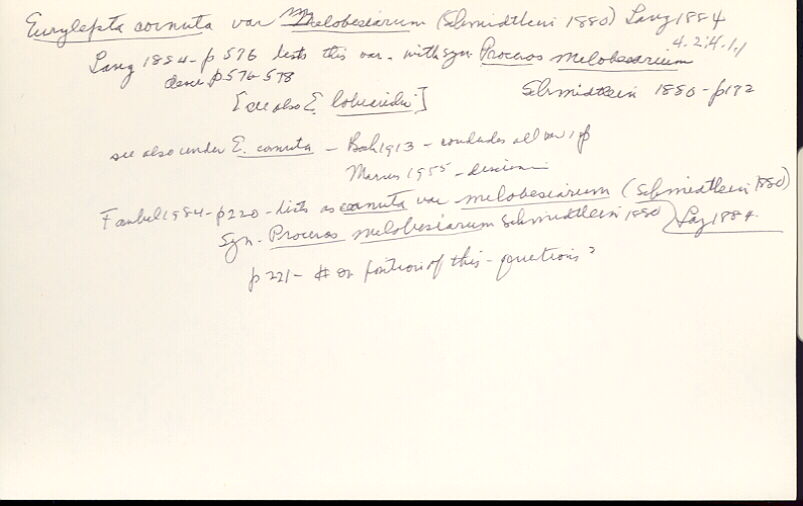 Eurylepta cornuta var Melobesiarum (Schmidtlein 1880) Lang 1884
4.2.4.1.1
Lang 1884 - p 576 lists this var. with syn. Proceros melobesiarum
desc p 576-578
Schmidtlein 1880 - p172
[see also E. lobiancoi]
see also under E. cornuta - Bock 1913 - concludes all var 1 sp
Marcus 1955 - discussion
Faubel 1984 - p220 - lists as cornuta var melobesiarum (Schmidtlein 1880)
Syn. Proceros melobesiarum Schmidtlein 1880) Lang 1884.
p 221 - # or position of this - questions?